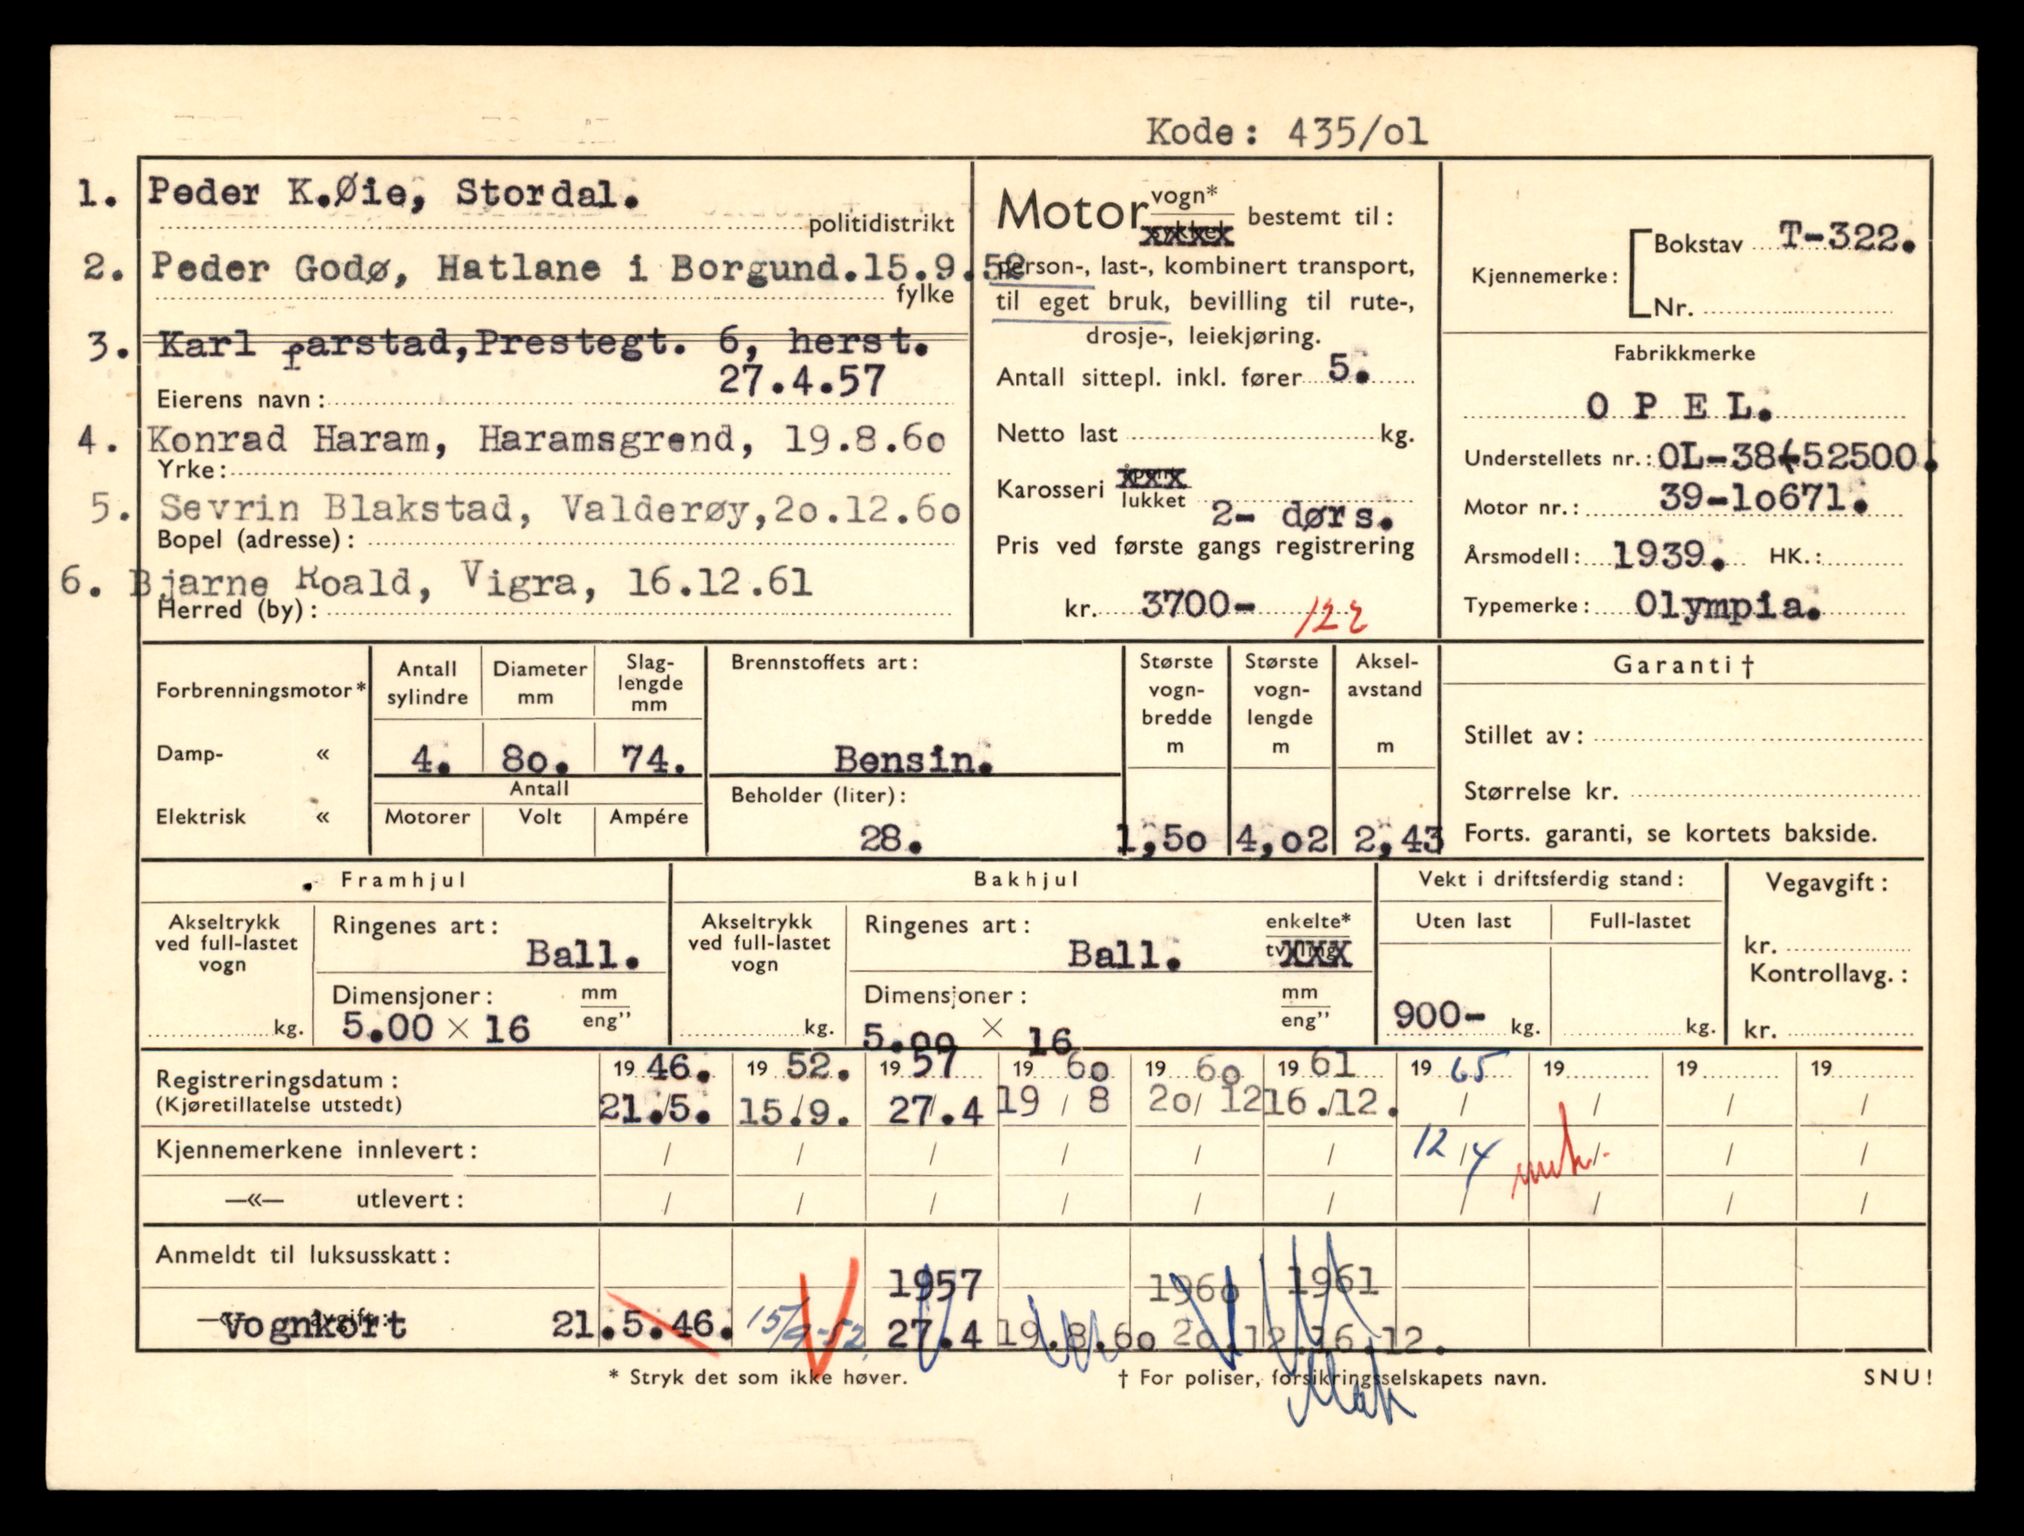 Kode: 435/o1
1. Peder K.Øie, Stordal.
politidistrikt
2. Peder Godø, Hatlane i Borgund.15.9.52
fylke
3. Karl Farstad,Prestegt. 6, herst.
27.4.57
Eierens navn:
4. Konrad Haram, Haramsgrend, 19.8.6o
Yrke:
5. Sevrin Blakstad, Valderøy,2o.12.6o
Bopel (adresse):
6. Bjarne Roald, Vigra, 16.12.61
Herred (by):
Motor vogn* bestemt til:
sykkel xxxx
person-, last-, kombinert transport,
til eget bruk, bevilling til rute-,
drosje-, leiekjøring.
Antall sittepl. inkl. fører 5.
Netto last kg.
Karosseri åpent xxx
lukket 2- dørs.
Pris ved første gangs registrering
kr. 3700- 122
Kjennemerke: Bokstav T-322.
Nr.
Fabrikkmerke
O P E L.
Understellets nr.: OL-38-52500.
Motor nr.: 39-1o671.
Årsmodell: 1939. HK.:
Typemerke: Olympia.
Forbrenningsmotor*
Damp- «
Elektrisk «
Antall sylindre
Diameter mm
Slag- lengde mm
4. 8o. 74.
Antall
Motorer Volt Ampére
Brennstoffets art:
Bensin.
Beholder (liter):
28.
Største vogn- bredde m
Største vogn- lengde m
Aksel- avstand m
1,5o 4,o2 2,43
Garanti †
Stillet av:
Størrelse kr.
Forts. garanti, se kortets bakside.
Framhjul
Akseltrykk ved full-lastet vogn
kg.
Ringenes art:
Ball.
Dimensjoner: mm eng”
5.00 × 16
Bakhjul
Akseltrykk ved full-lastet vogn
kg.
Ringenes art: enkelte*
Ball. tvilling XXX
Dimensjoner: mm eng”
5.00 × 16
Vekt i driftsferdig stand:
Uten last Full-lastet
900- kg. kg.
Vegavgift:
kr.
Kontrollavg.:
kr.
Registreringsdatum: 19 46. 19 52. 19 57 19 6o 19 6o 19 61 19 65 19 19 19
(Kjøretillatelse utstedt) 21./5. 15/9. 27/.4 19 / 8 2o/ 12 16./12. / / / /
Kjennemerkene innlevert: / / / / / / 12/4 / / /
—«— utlevert: / / / / / / / / / /
Anmeldt til luksusskatt:
1957 196o 1961
—«— avgift:
Vognkort 21.5.46. 15/9-52. 27.4 19.8.6o 2o.12. 16.12.
* Stryk det som ikke høver.
† For poliser, forsikringsselskapets navn.
SNU!